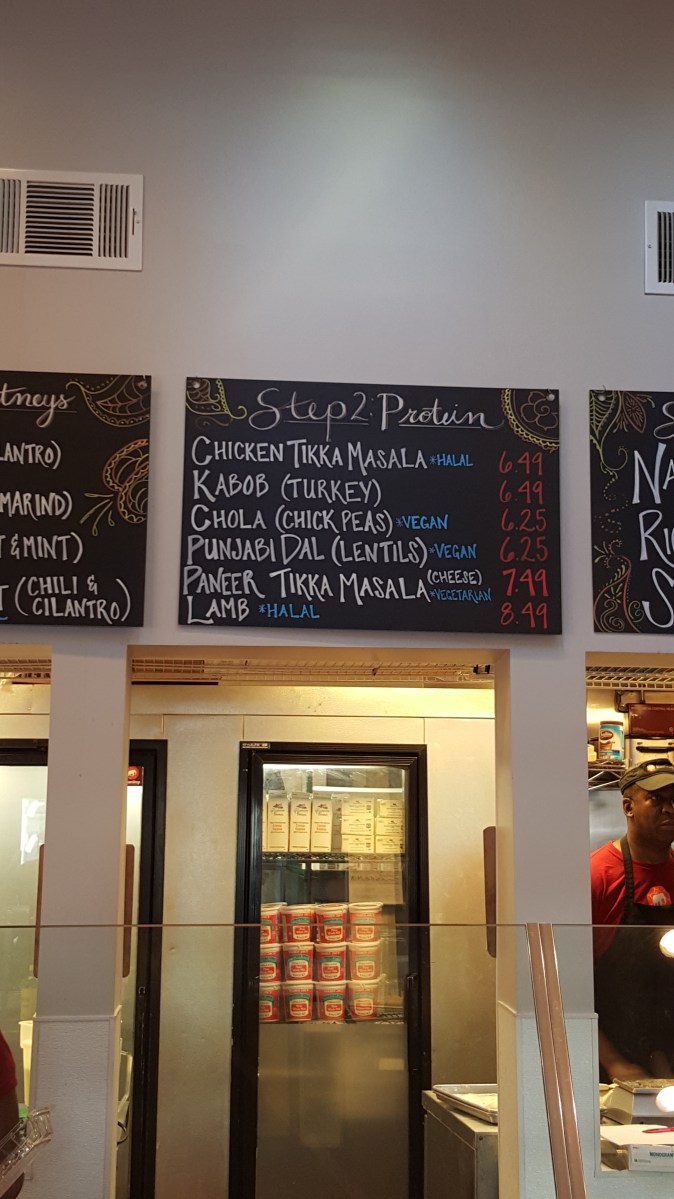 tneys
LANTRO)
MARIND)
T & MINT)
T (CHILI &
CILANTRO)
Step 2: Protein
CHICKEN TIKKA MASALA *HALAL 6.49
KABOB (TURKEY) 6.49
CHOLA (CHICK PEAS) *VEGAN 6.25
PUNJABI DAL (LENTILS) *VEGAN 6.25
PANEER TIKKA MASALA (CHEESE) *VEGETARIAN 7.49
LAMB *HALAL 8.49
S
NA
RI
S